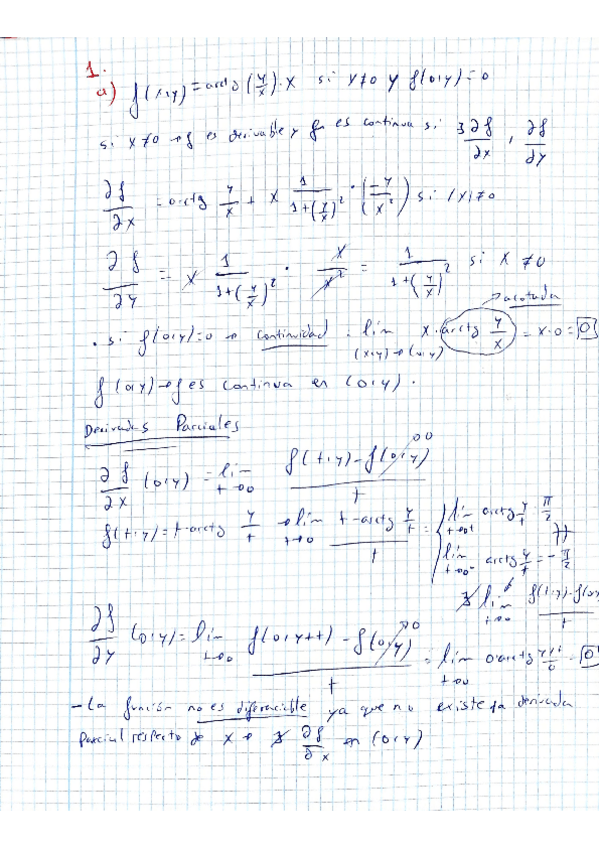 1.
a) f(x,y) = arctg (y/x) · x si x≠0 y f(0,y) = 0
si x≠0 → f es derivable y es continua si ∃ ∂f/∂x , ∂f/∂y
∂f/∂x = arctg y/x + x 1/(1+(y/x)²) · (-y/x²) si x≠0
∂f/∂y = x 1/(1+(y/x)²) · x/x² = 1/(1+(y/x)²) si x≠0
→ acotada
· si f(0,y)=0 → continuidad: lím (x,y)→(0,y) x · arctg y/x = x·0 = 0
f(0,y) → f es continua en (0,y).
Derivadas Parciales
∂f/∂x (0,y) = lím t→0 (f(t,y) - f(0,y))/t →0
f(t,y) = t·arctg y/t → lím t→0 (t·arctg y/t)/t = { lím t→0+ arctg y/t = π/2
≠
lím t→0- arctg y/t = -π/2
∄ lím t→0 (f(t,y) - f(0,y))/t
∂f/∂y (0,y) = lím t→0 (f(0,y+t) - f(0,y))/t →0 = lím t→0 0·arctg (y+t)/0 = 0
- La función no es diferenciable ya que no existe la derivada
Parcial respecto de x → ∄ ∂f/∂x en (0,y)